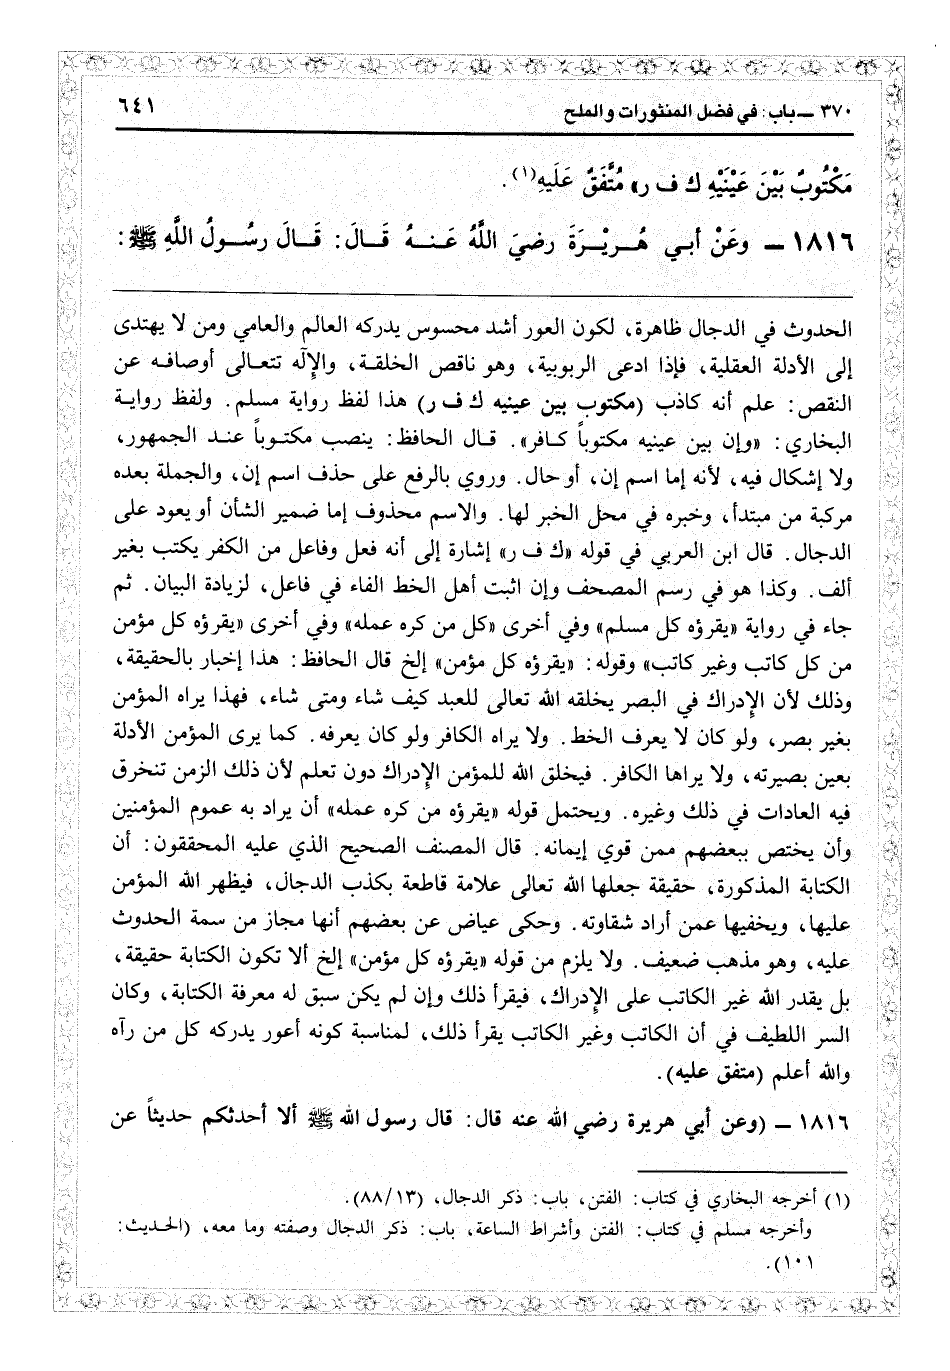 ٣٧٠ ــ باب: في فضل المنثورات والملح ٦٤١
مَكْتُوبٌ بَيْنَ عَيْنَيْهِ ك ف ر» مُتَّفَقٌ عَلَيهِ(١).
١٨١٦ ــ وعَنْ أبي هُــرَيْــرَةَ رضيَ اللَّهُ عَـنـهُ قَـالَ: قَـالَ رسُـولُ اللَّهِ ﷺ:
الحدوث في الدجال ظاهرة، لكون العور أشد محسوس يدركه العالم والعامي ومن لا يهتدى
إلى الأدلة العقلية، فإذا ادعى الربوبية، وهو ناقص الخلقة، والإلٰه تتعالى أوصافه عن
النقص: علم أنه كاذب (مكتوب بين عينيه ك ف ر) هذا لفظ رواية مسلم. ولفظ رواية
البخاري: «وإن بين عينيه مكتوباً كافر». قال الحافظ: ينصب مكتوباً عند الجمهور،
ولا إشكال فيه، لأنه إما اسم إن، أو حال. وروي بالرفع على حذف اسم إن، والجملة بعده
مركبة من مبتدأ، وخبره في محل الخبر لها. والاسم محذوف إما ضمير الشأن أو يعود على
الدجال. قال ابن العربي في قوله «ك ف ر» إشارة إلى أنه فعل وفاعل من الكفر يكتب بغير
ألف. وكذا هو في رسم المصحف وإن اثبت أهل الخط الفاء في فاعل، لزيادة البيان. ثم
جاء في رواية «يقرؤه كل مسلم» وفي أخرى «كل من كره عمله» وفي أخرى «يقرؤه كل مؤمن
من كل كاتب وغير كاتب» وقوله: «يقرؤه كل مؤمن» إلخ قال الحافظ: هذا إخبار بالحقيقة،
وذلك لأن الإدراك في البصر يخلقه الله تعالى للعبد كيف شاء ومتى شاء، فهذا يراه المؤمن
بغير بصر، ولو كان لا يعرف الخط. ولا يراه الكافر ولو كان يعرفه. كما يرى المؤمن الأدلة
بعين بصيرته، ولا يراها الكافر. فيخلق الله للمؤمن الإدراك دون تعلم لأن ذلك الزمن تنخرق
فيه العادات في ذلك وغيره. ويحتمل قوله «يقرؤه من كره عمله» أن يراد به عموم المؤمنين
وأن يختص ببعضهم ممن قوي إيمانه. قال المصنف الصحيح الذي عليه المحققون: أن
الكتابة المذكورة، حقيقة جعلها الله تعالى علامة قاطعة بكذب الدجال، فيظهر الله المؤمن
عليها، ويخفيها عمن أراد شقاوته. وحكى عياض عن بعضهم أنها مجاز من سمة الحدوث
عليه، وهو مذهب ضعيف. ولا يلزم من قوله «يقرؤه كل مؤمن» إلخ ألا تكون الكتابة حقيقة،
بل يقدر الله غير الكاتب على الإدراك، فيقرأ ذلك وإن لم يكن سبق له معرفة الكتابة، وكان
السر اللطيف في أن الكاتب وغير الكاتب يقرأ ذلك، لمناسبة كونه أعور يدركه كل من رآه
والله أعلم (متفق عليه).
١٨١٦ ــ (وعن أبي هريرة رضي الله عنه قال: قال رسول الله ﷺ ألا أحدثكم حديثاً عن
(١) أخرجه البخاري في كتاب: الفتن، باب: ذكر الدجال، (٨٨/١٣).
وأخرجه مسلم في كتاب: الفتن وأشراط الساعة، باب: ذكر الدجال وصفته وما معه، (الحديث:
١٠١).